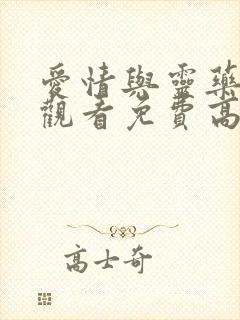 愛情與靈藥
觀看免費高
高士奇